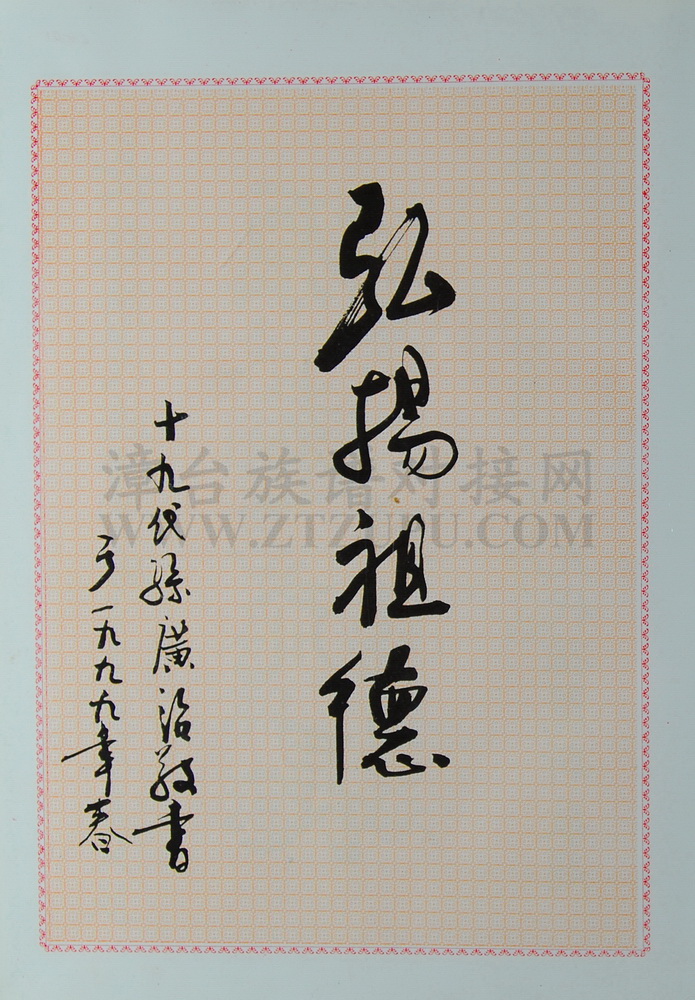 弘揚祖德
十九代孫廣治敬書
于一九九九年春
漳台族谱对接网
WWW.ZTZUPU.COM